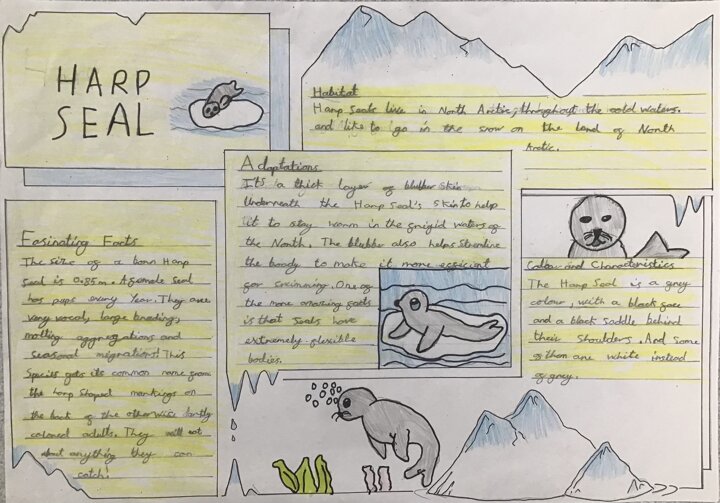 HARP
SEAL
Habitat
Harp Seals live in North Arctic, throughout the cold waters.
and like to go in the snow on the land of North
Arctic.
Adaptations
It's a thick layer of blubber skin
underneath the Harp Seal's skin to help
it to stay warm in the frigid waters of
the North. The blubber also helps streamline
the body to make it more efficient
for swimming. One of
the more amazing facts
is that seals have
extremely flexible
bodies.
Fasinating Facts
The size of a born Harp
Seal is 0.85m. A female seal
has pups every year. They are
very vocal, large breeding,
molting aggregations and
seasonal migrations! This
Species gets its common name from
the harp shaped markings on
the back of the otherwise
colored adults. They will eat
anything they can
catch!
Colour and Characteristics
The Harp Seal is a grey
colour, with a black face
and a black saddle behind
their shoulders. And some
of them are white instead
of grey.